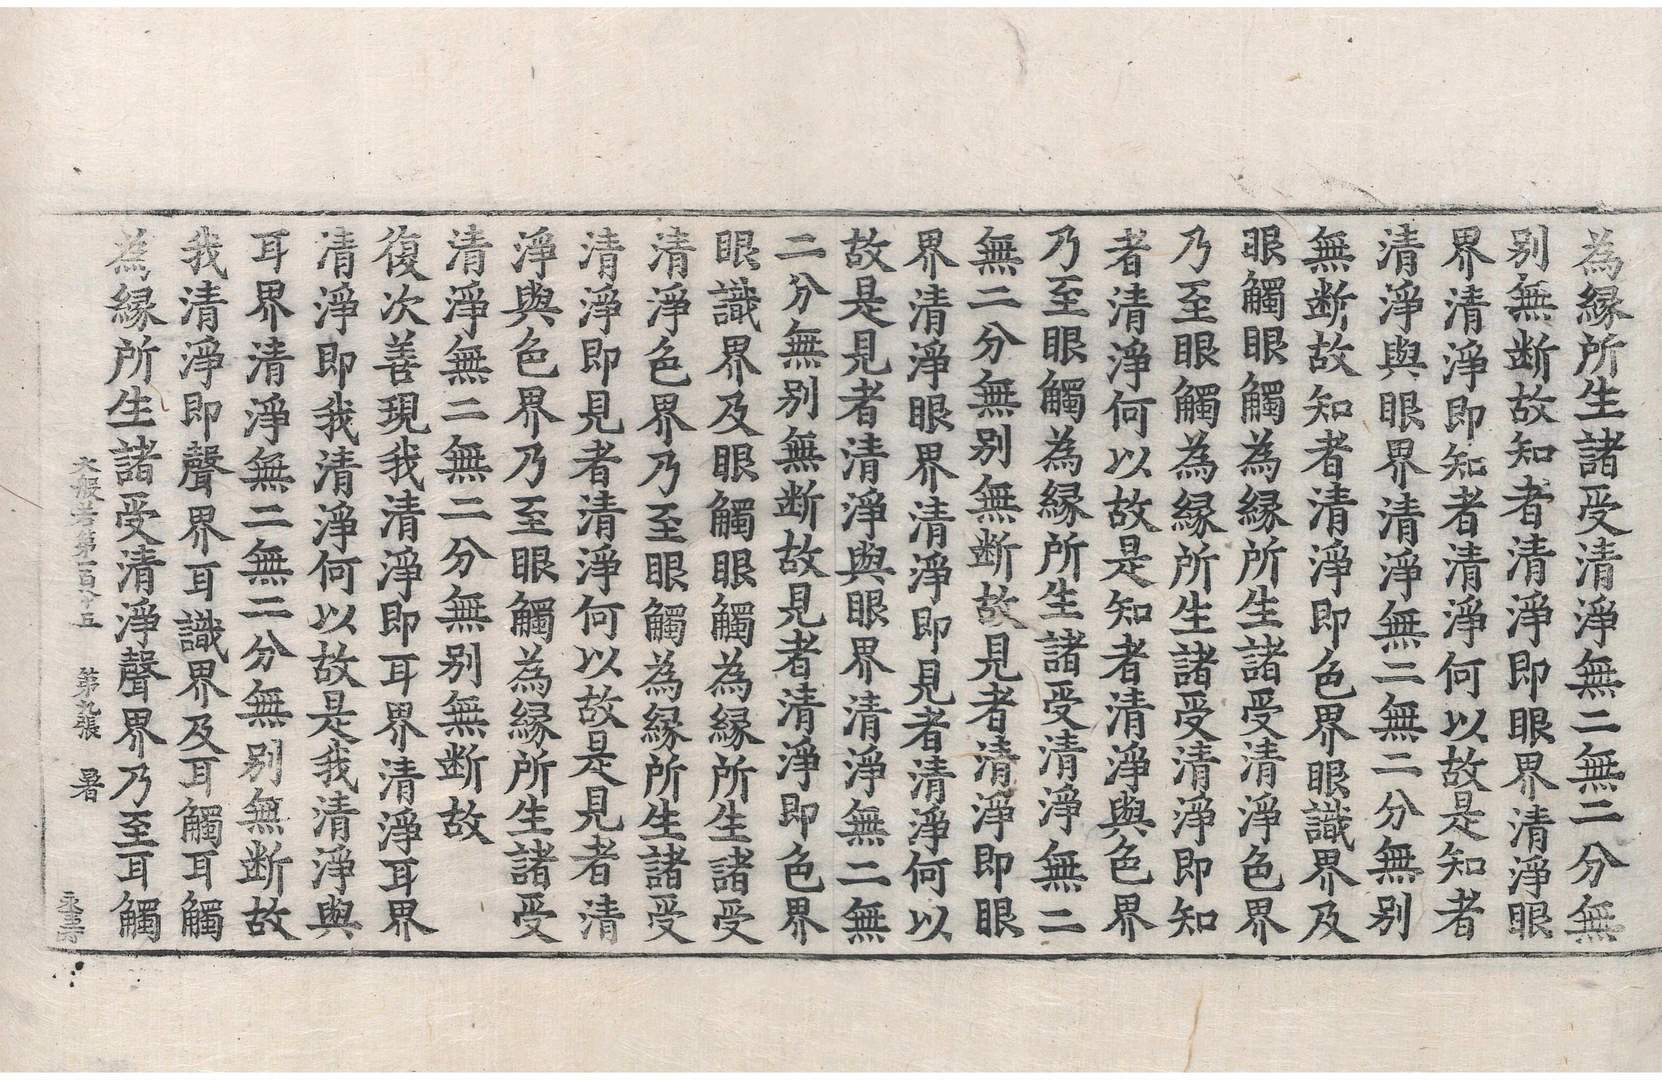 為縁所生諸受清淨無二無二分無
别無断故知者清淨即眼界清淨眼
界清淨即知者清淨何以故是知者
清淨與眼界清淨無二無二分無别
無断故知者清淨即色界眼識界及
眼觸眼觸為縁所生諸受清淨色界
乃至眼觸為縁所生諸受清淨即知
者清淨何以故是知者清淨與色界
乃至眼觸為縁所生諸受清淨無二
無二分無别無断故見者清淨即眼
界清淨眼界清淨即見者清淨何以
故是見者清淨與眼界清淨無二無
二分無别無断故見者清淨即色界
眼識界及眼觸眼觸為縁所生諸受
清淨色界乃至眼觸為縁所生諸受
清淨即見者清淨何以故是見者清
淨與色界乃至眼觸為縁所生諸受
清淨無二無二分無别無断故
復次善現我清淨即耳界清淨耳界
清淨即我清淨何以故是我清淨與
耳界清淨無二無二分無别無断故
我清淨即聲界耳識界及耳觸耳觸
為縁所生諸受清淨聲界乃至耳觸
大般若第一百八十五 第九張 暑